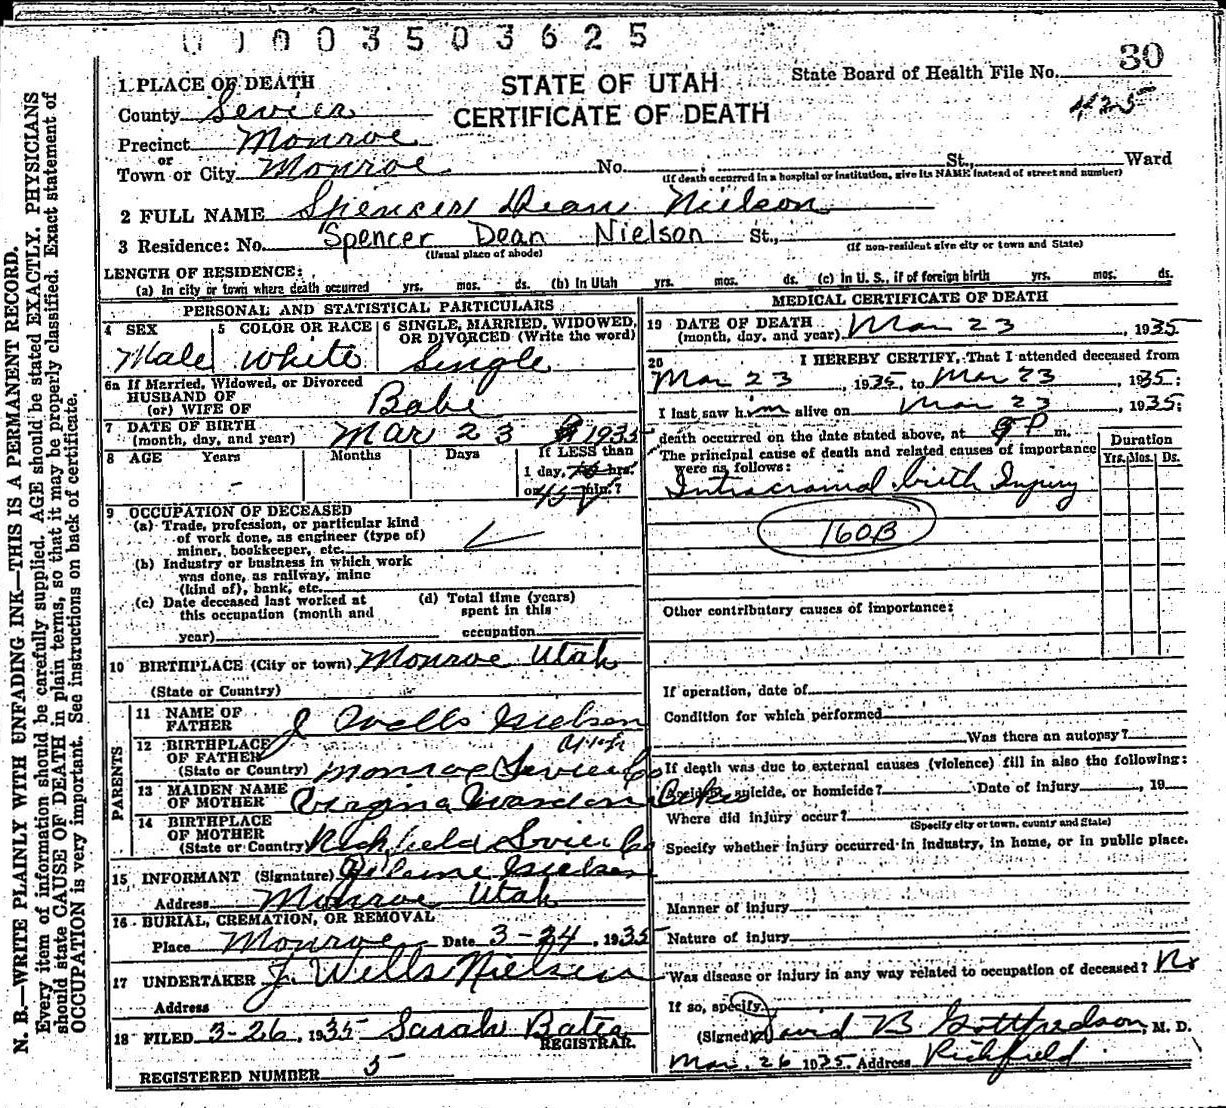 0 1 0 0 3 5 0 3 6 2 5
STATE OF UTAH
CERTIFICATE OF DEATH
State Board of Health File No. 30
425
1 PLACE OF DEATH
County Sevier
Precinct Monroe
or
Town or City Monroe No. St., Ward
(If death occurred in a hospital or institution, give its NAME instead of street and number)
2 FULL NAME Spencer Dean Nielson
3 Residence: No. Spencer Dean Nielson St.,
(Usual place of abode) (If non-resident give city or town and State)
LENGTH OF RESIDENCE:
(a) In city or town where death occurred yrs. mos. ds. (b) In Utah yrs. mos. ds. (c) In U. S., if of foreign birth yrs. mos. ds.
PERSONAL AND STATISTICAL PARTICULARS
4 SEX 5 COLOR OR RACE 6 SINGLE, MARRIED, WIDOWED, OR DIVORCED (Write the word)
Male White Single
6a If Married, Widowed, or Divorced
HUSBAND OF
(or) WIFE OF Babe
7 DATE OF BIRTH
(month, day, and year) Mar 23 1935
8 AGE Years Months Days If LESS than
1 day, hrs.
or 45 min.?
9 OCCUPATION OF DECEASED
(a) Trade, profession, or particular kind
of work done, as engineer (type of)
miner, bookkeeper, etc.
(b) Industry or business in which work
was done, as railway, mine
(kind of), bank, etc.
(c) Date deceased last worked at
this occupation (month and
year)
(d) Total time (years)
spent in this
occupation
10 BIRTHPLACE (City or town) Monroe Utah
(State or Country)
PARENTS
11 NAME OF
FATHER J Wells Nielsen
12 BIRTHPLACE
OF FATHER Utah
(State or Country) Monroe Sevier Co
13 MAIDEN NAME
OF MOTHER Virginia
14 BIRTHPLACE
OF MOTHER
(State or Country) Richfield Sevier Co
15 INFORMANT (Signature) Nielsen
Address Monroe Utah
16 BURIAL, CREMATION, OR REMOVAL
Place Monroe Date 3-24, 1935
17 UNDERTAKER J. Wells Nielsen
Address
18 FILED 3-26, 1935 Sarah Bates
REGISTRAR.
REGISTERED NUMBER 5
MEDICAL CERTIFICATE OF DEATH
19 DATE OF DEATH
(month, day, and year) Mar 23, 1935
20 I HEREBY CERTIFY, That I attended deceased from
Mar 23, 1935, to Mar 23, 1935;
I last saw him alive on Mar 23, 1935;
death occurred on the date stated above, at 9 P m.
The principal cause of death and related causes of importance
were as follows:
Duration
Yrs. Mos. Ds.
Intracranial birth Injury
160B
Other contributory causes of importance:
If operation, date of
Condition for which performed
Was there an autopsy?
If death was due to external causes (violence) fill in also the following:
Accident, suicide, or homicide? Date of injury, 19
Where did injury occur?
(Specify city or town, county and State)
Specify whether injury occurred in industry, in home, or in public place.
Manner of injury
Nature of injury
Was disease or injury in any way related to occupation of deceased? No
If so, specify
(Signed) David B Gottfredson, M. D.
Mar. 26 1935 Address Richfield
N. B.—WRITE PLAINLY WITH UNFADING INK—THIS IS A PERMANENT RECORD.
Every item of information should be carefully supplied. AGE should be stated EXACTLY. PHYSICIANS
should state CAUSE OF DEATH in plain terms, so that it may be properly classified. Exact statement of
OCCUPATION is very important. See instructions on back of certificate.